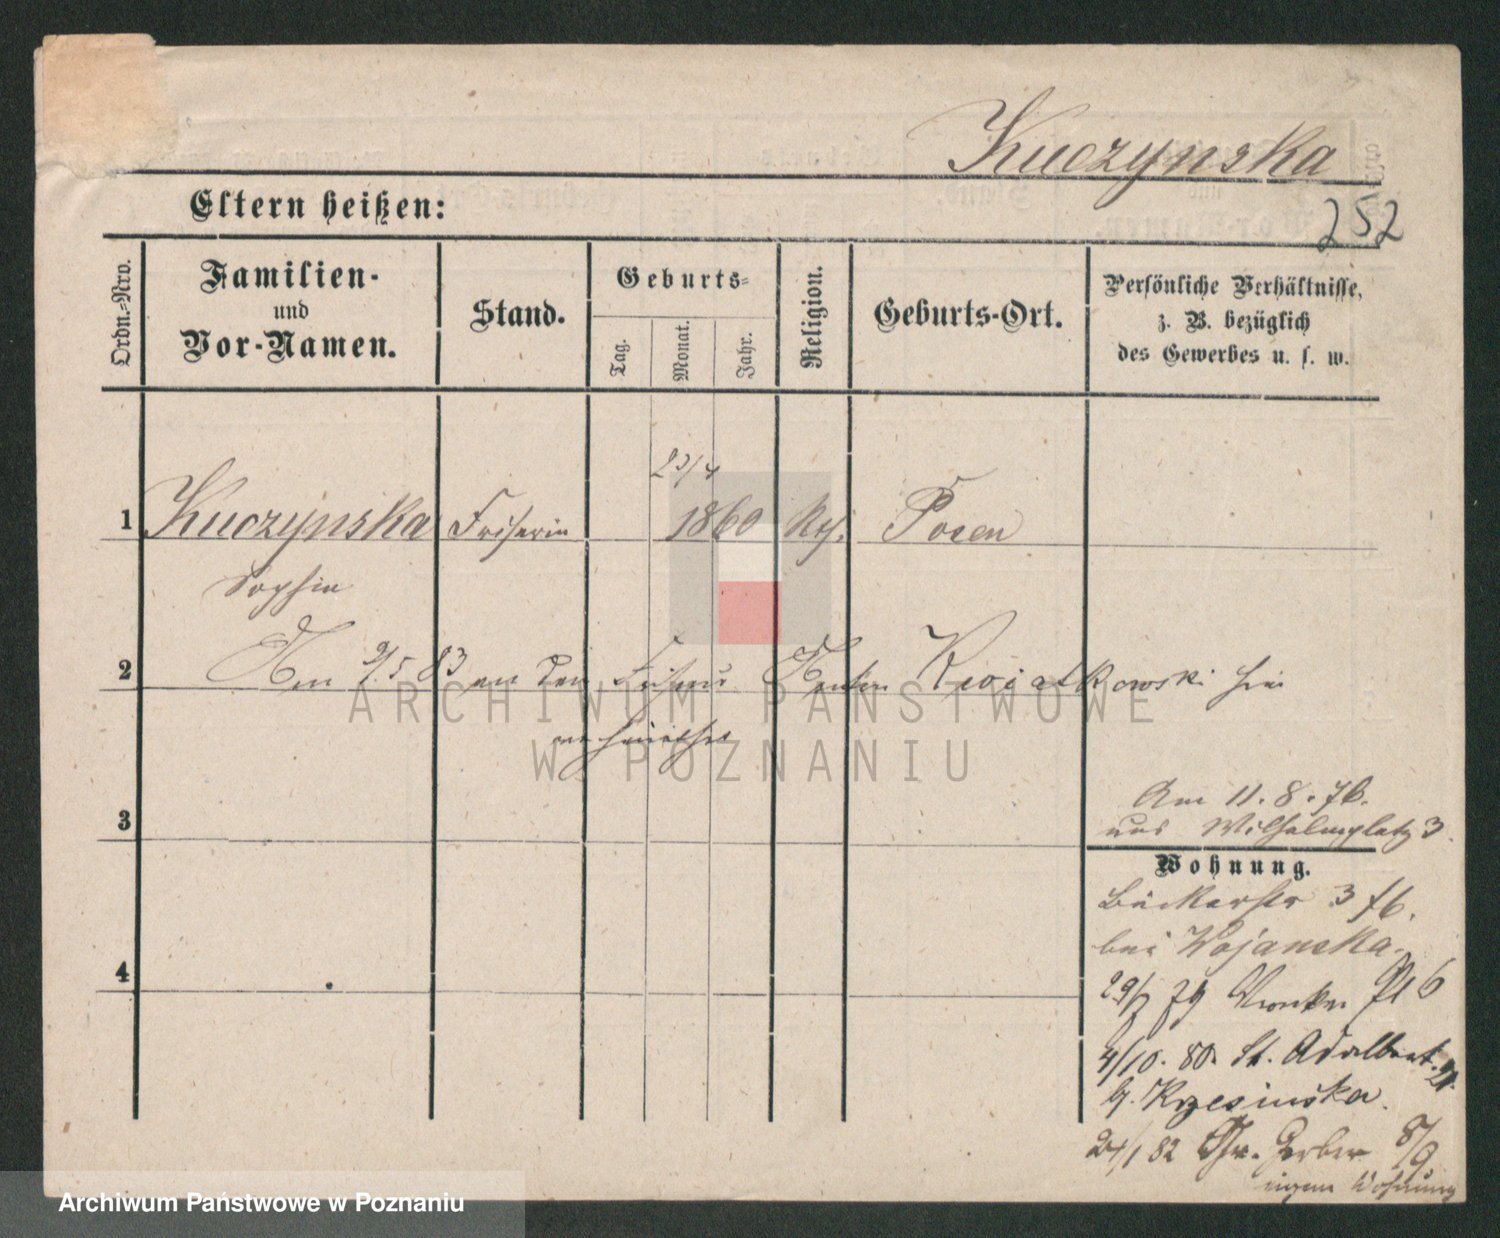 Kuczynska
252
Eltern heißen:
Ordn.-Nro.
Familien-
und
Vor-Namen.
Stand.
Geburts-
Tag.
Monat.
Jahr.
Religion.
Geburts-Ort.
Persönliche Verhältnisse,
z. B. bezüglich
des Gewerbes u. s. w.
23/4
1 Kuczynska Friserin 1860 Posen
Sophie
2 Am 9/5 83 an den Friseur Anton Kwiatkowski hier
verheirathet
ARCHIWUM PAŃSTWOWE
W POZNANIU
Am 11. 8. 76.
aus Wilhelmsplatz 3
3
Wohnung.
Bäckerstr 3
bei Wojanska.
4
29/ 79 Wronker Pl 6
4/10. 80. St. Adalbert. 21.
b. Krzesinska.
24/1 82 Gr. Gerber 8/9
eigene Wohnung
Archiwum Państwowe w Poznaniu